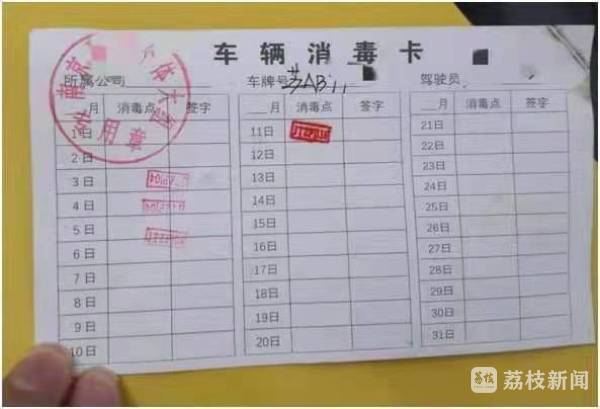 车辆消毒卡
所属公司 车牌号 苏AB 驾驶员
月 消毒点 签字 月 消毒点 签字 月 消毒点 签字
1日 11日 21日
2日 12日 22日
3日 13日 23日
4日 14日 24日
5日 15日 25日
6日 16日 26日
7日 17日 27日
8日 18日 28日
9日 19日 29日
10日 20日 30日
31日
南京
用章
荔枝新闻